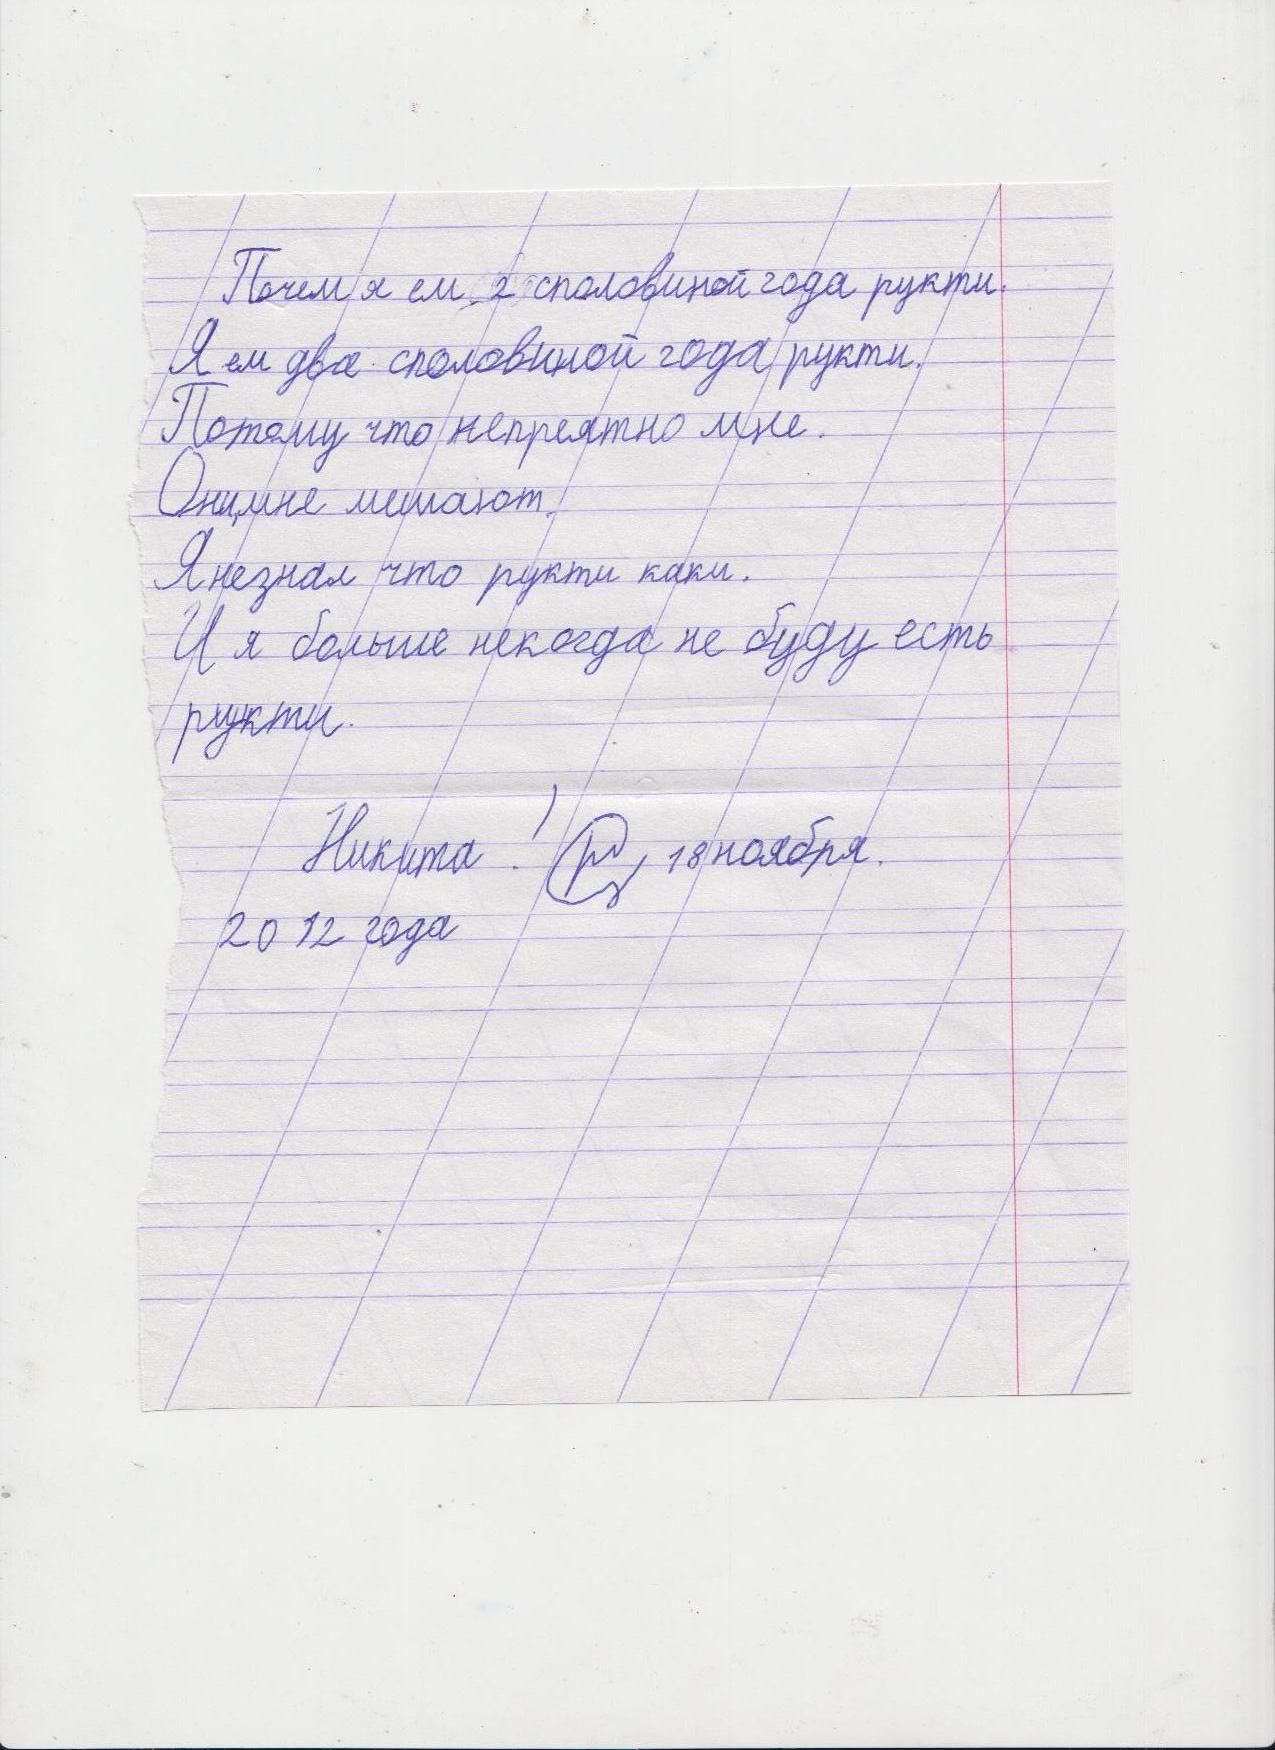 Почем я ем 2 сполoвиной года рукти.
Я ем два сполoвиной года рукти.
Потому что непреятно мне.
Они мне мешают.
Я незнал что рукти каки.
И я больше некогда не буду есть
рукти.
Никита 18 ноября.
2012 года